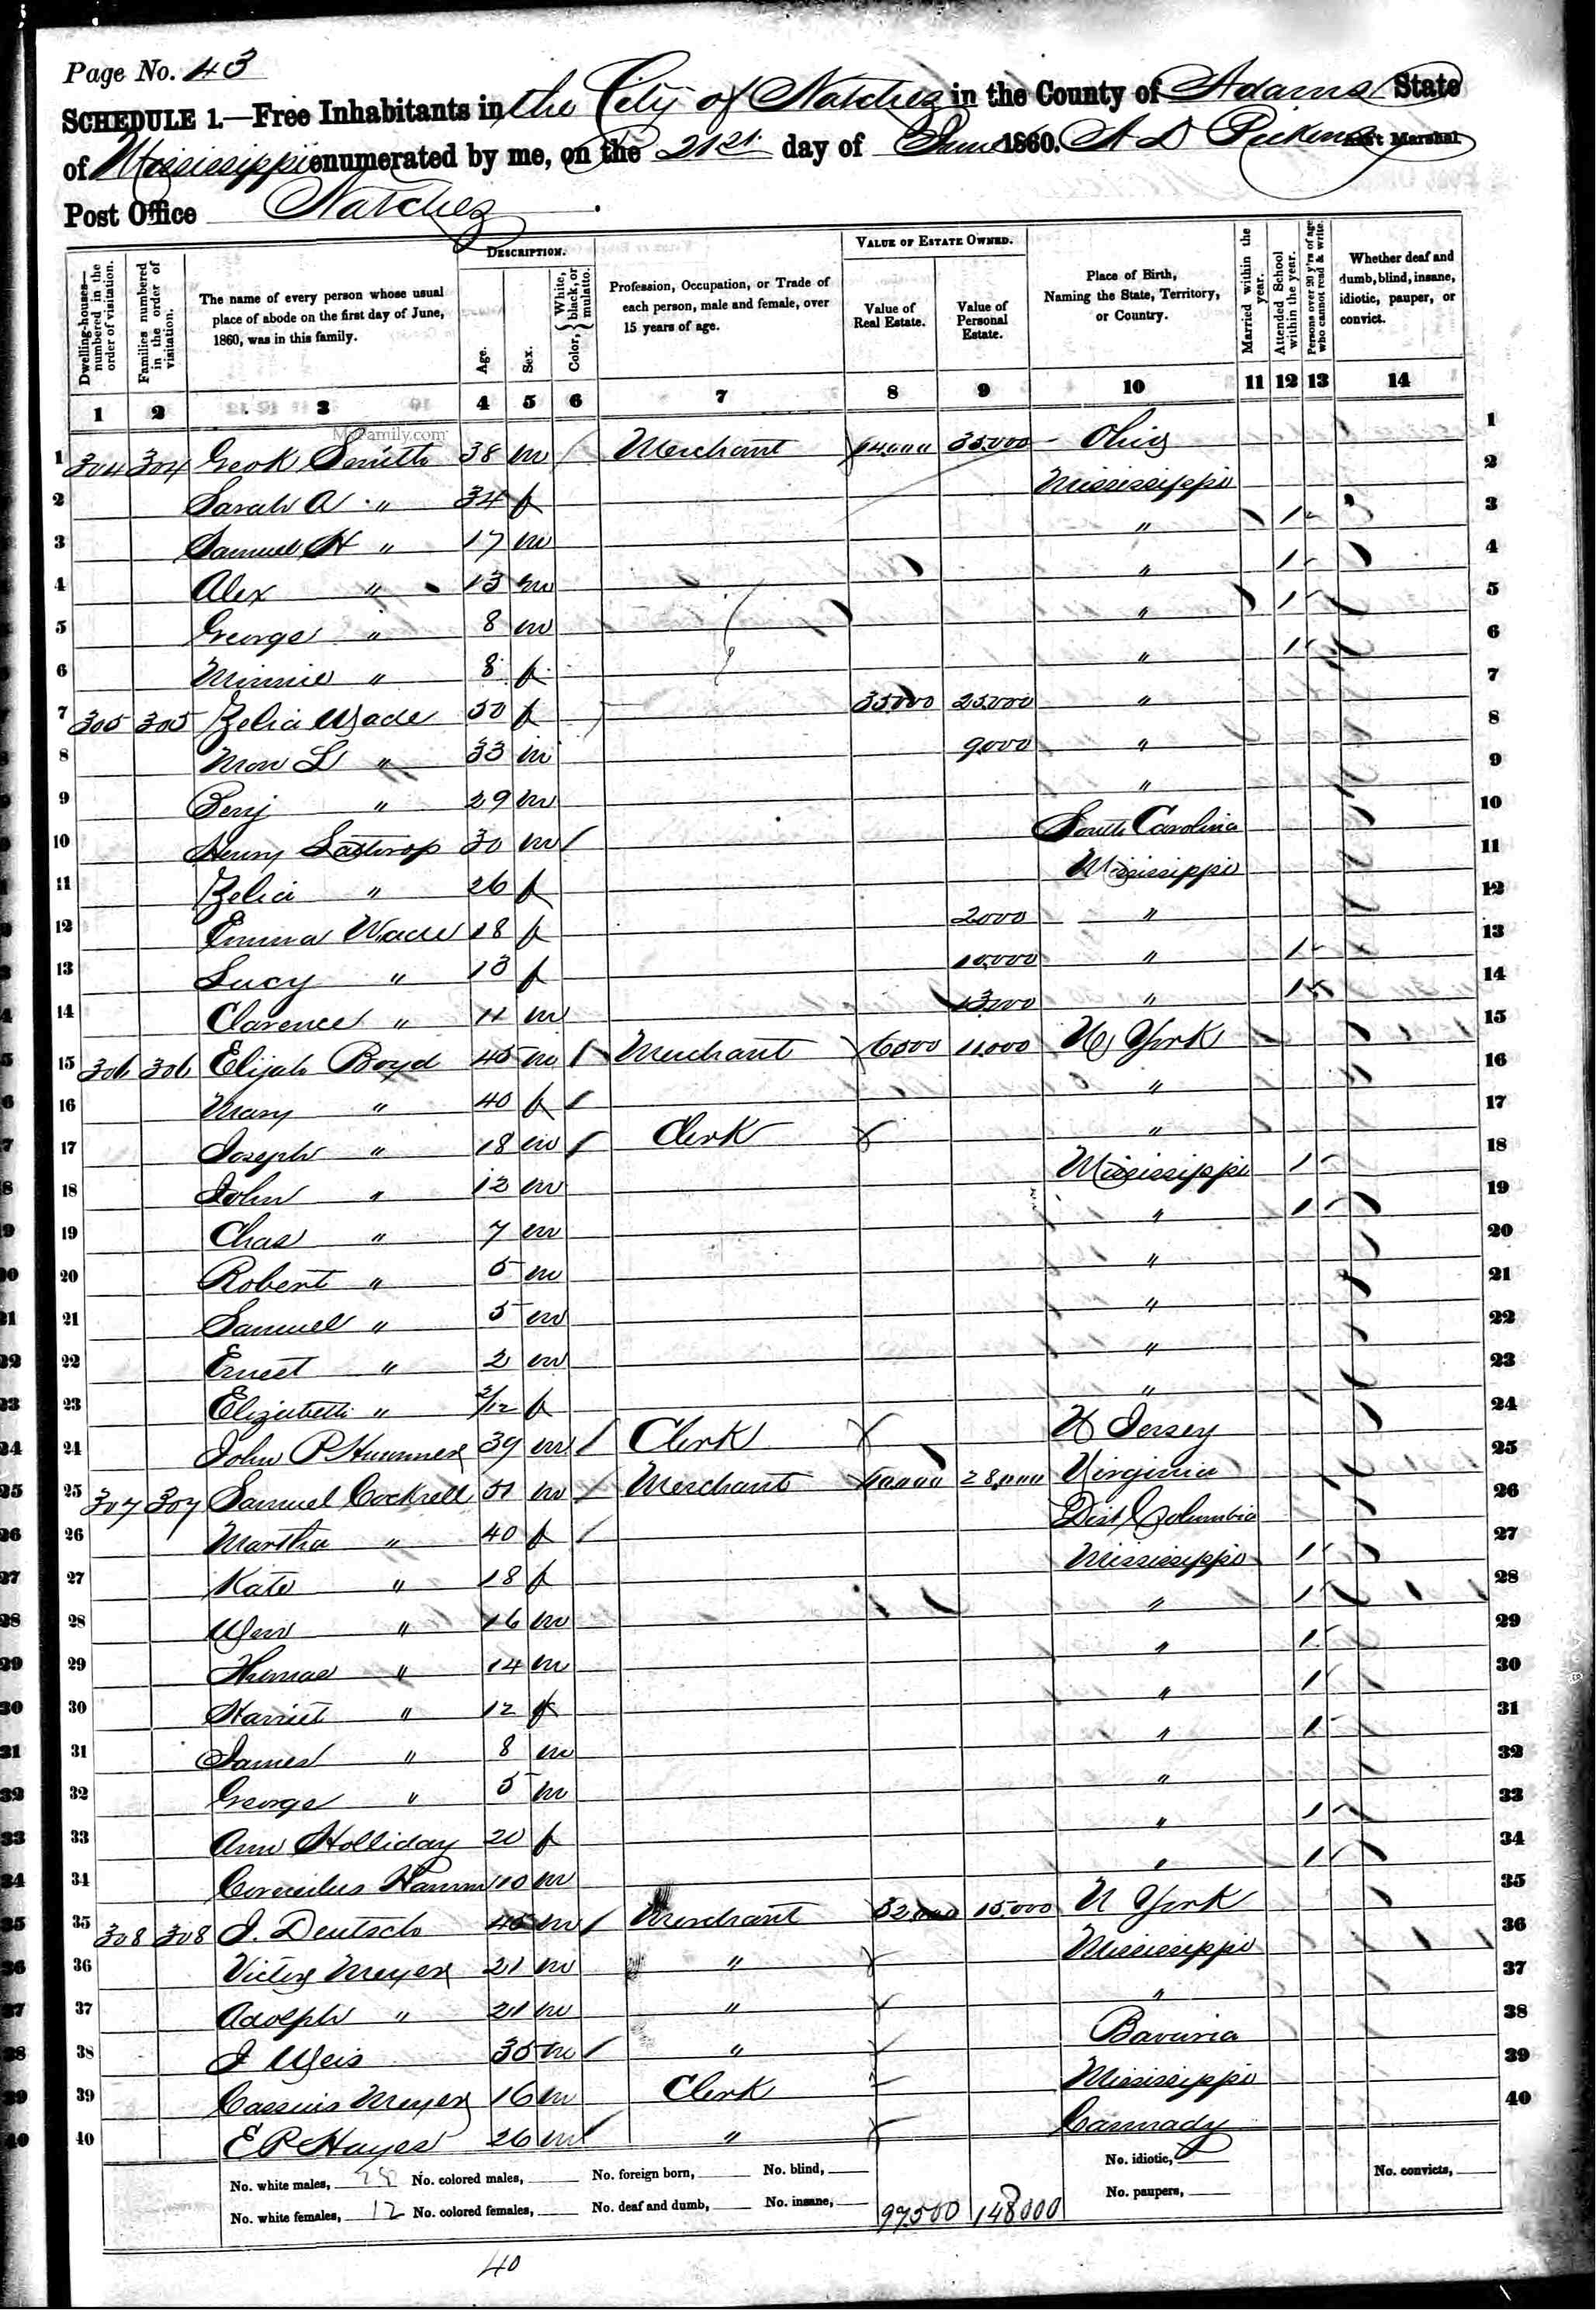 Page No. 43
SCHEDULE 1.—Free Inhabitants in the City of Natchez in the County of Adams State
of Mississippi enumerated by me, on the 21st day of June 1860. A D Pickens Ass't Marshal
Post Office Natchez
Dwelling-houses—numbered in the order of visitation.
Families numbered in the order of visitation.
The name of every person whose usual place of abode on the first day of June, 1860, was in this family.
DESCRIPTION.
Age.
Sex.
Color, { White, black, or mulatto.
Profession, Occupation, or Trade of each person, male and female, over 15 years of age.
VALUE OF ESTATE OWNED.
Value of Real Estate.
Value of Personal Estate.
Place of Birth, Naming the State, Territory, or Country.
Married within the year.
Attended School within the year.
Persons over 20 y'rs of age who cannot read & write.
Whether deaf and dumb, blind, insane, idiotic, pauper, or convict.
1 2 3 4 5 6 7 8 9 10 11 12 13 14
MyFamily.com
1 304 304 Geo K Smith 38 m / Merchant 35000 Ohio 1
2 Sarah A " 34 f Mississippi 2
3 Samuel H " 17 m " 1 3
4 Alex " 13 m " 1 4
5 George " 8 m " 1 5
6 Minnie " 8 f " 1 6
7 305 305 Zelia Wade 50 f 25000 " 7
8 " 33 m 9000 " 8
9 Benj " 29 m " 9
10 Henry Lathrop 30 m / South Carolina 10
11 Zelia " 26 f Mississippi 11
12 Emma Wade 18 f 2000 " 12
13 Lucy " 13 f 10000 " 1 13
14 Clarence " 11 m " 1 14
15 306 306 Elijah Boyd 45 m / Merchant 6000 11000 N York 15
16 Mary " 40 f / " 16
17 Joseph " 18 m / Clerk " 17
18 John " 12 m Mississippi 1 18
19 Chas " 7 m " 1 19
20 Robert " 5 m " 20
21 Samuel " 5 m " 21
22 Ernest " 2 m " 22
23 Elizabeth " 2/12 f " 23
24 John P 39 m / Clerk N Jersey 24
25 307 307 Samuel Cockrell 51 m / Merchant 28,000 Virginia 25
26 Martha " 40 f / Dist Columbia 26
27 Kate " 18 f Mississippi 1 27
28 Wm " 16 m " 1 28
29 Thomas " 14 m " 1 29
30 Harriet " 12 f " 1 30
31 James " 8 m " 1 31
32 George " 5 m " 32
33 Ann Holliday 20 f " 1 33
34 Cornelius 10 m " 1 34
35 308 308 J. Deutsch 45 m / Merchant 15.000 N York 35
36 Victor Meyer 21 m " Mississippi 36
37 Adolph " 21 m " " 37
38 J Weis 35 m / " Bavaria 38
39 Cassius Meyer 16 m Clerk Mississippi 39
40 E P Hayes 26 m / " Cannady 40
No. white males, 28 No. colored males, No. foreign born, No. blind, No. idiotic, No. convicts,
No. white females, 12 No. colored females, No. deaf and dumb, No. insane, 97500 148000 No. paupers,
40